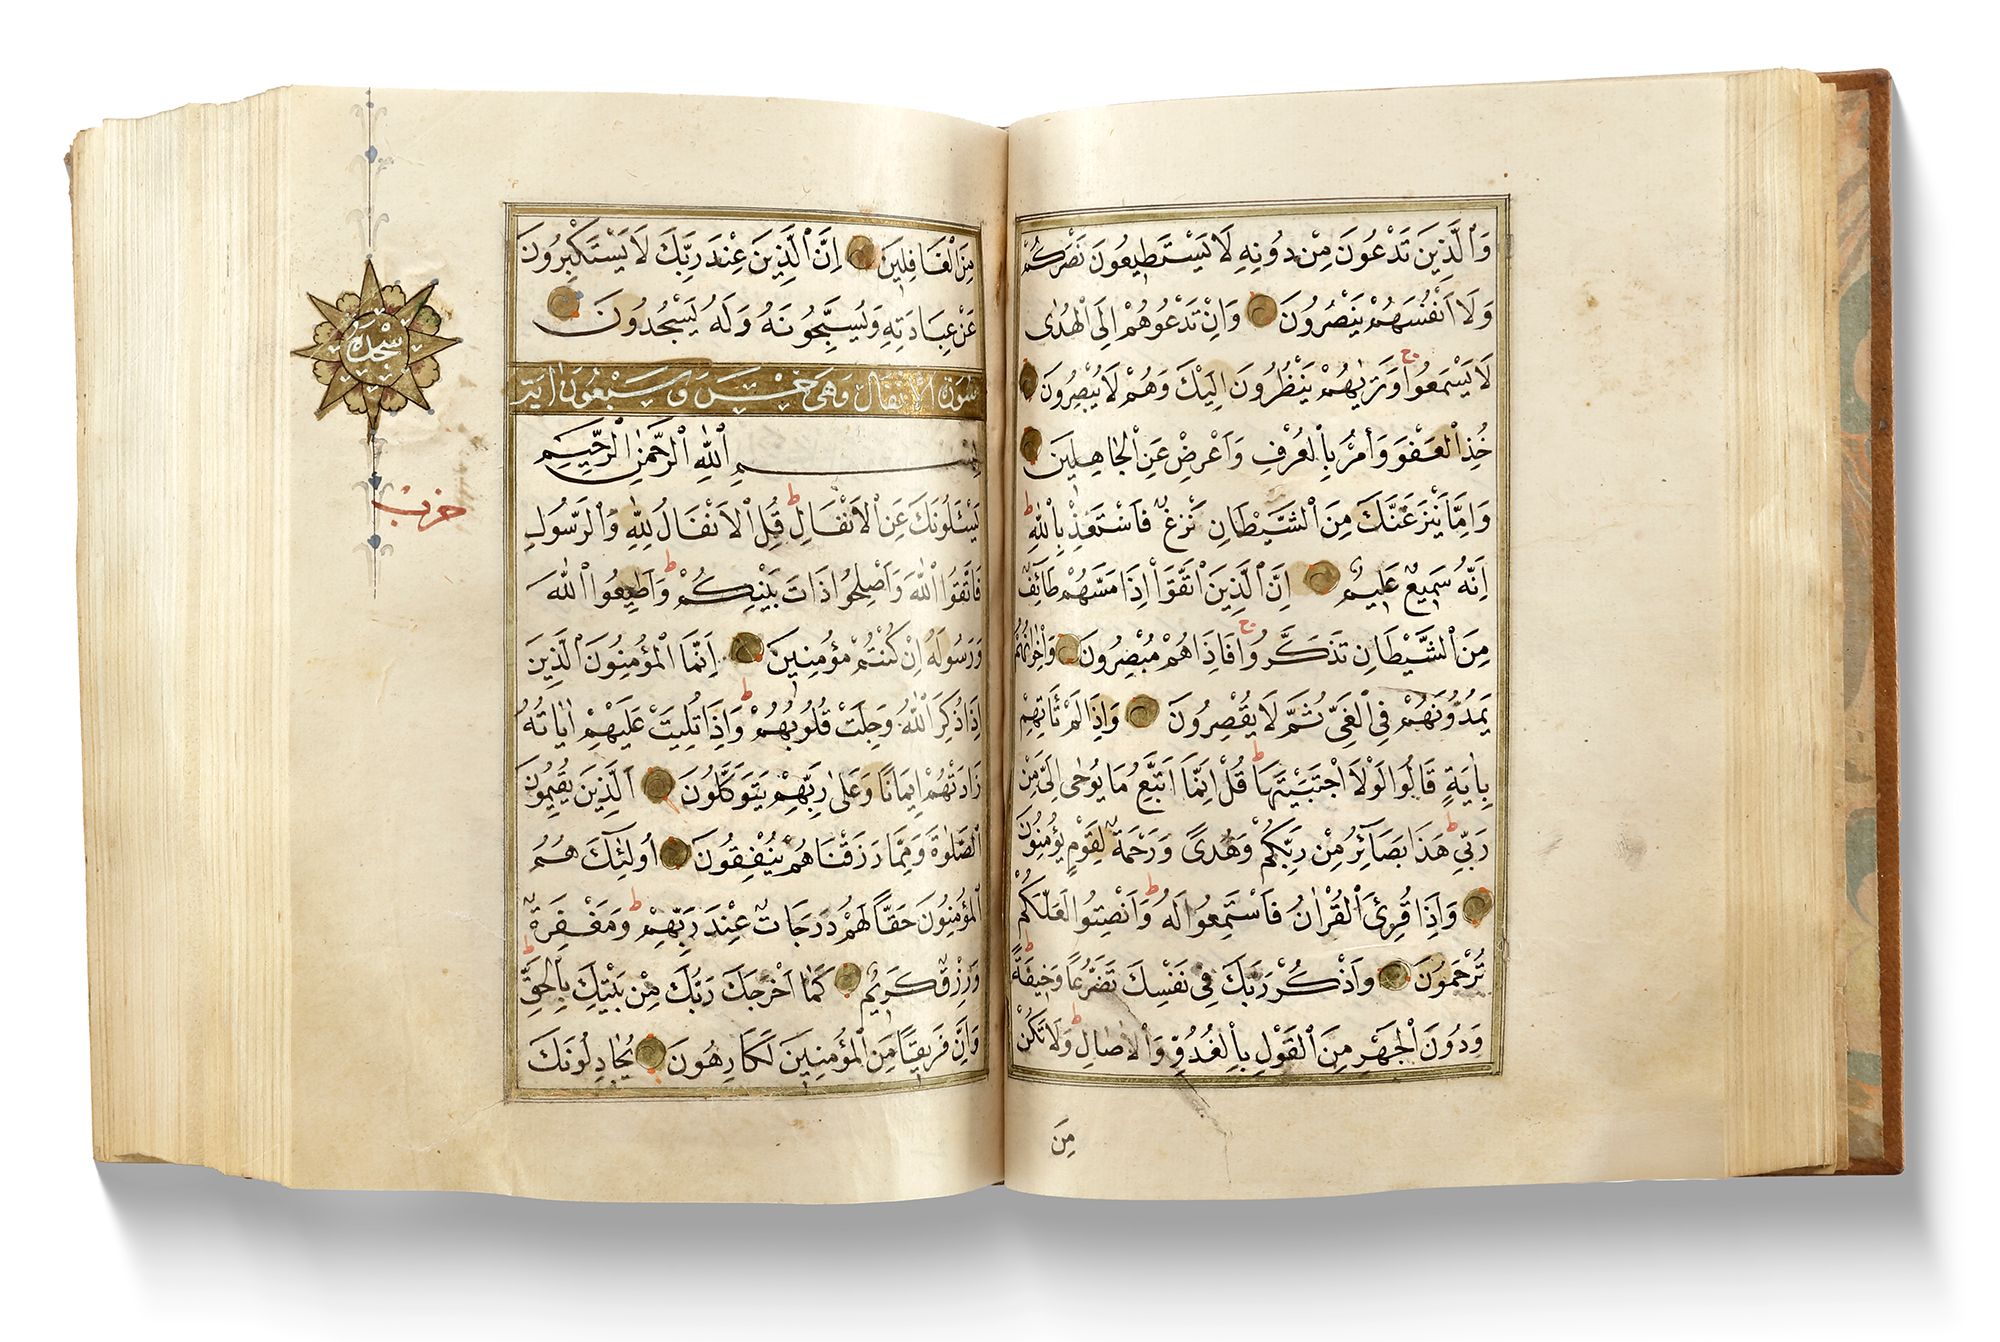 وَالَّذِينَ تَدْعُونَ مِنْ دُونِهِ لَا يَسْتَطِيعُونَ نَصْرَكُمْ
وَلَا أَنْفُسَهُمْ يَنْصُرُونَ وَإِنْ تَدْعُوهُمْ إِلَى الْهُدٰى
لَا يَسْمَعُوا وَتَرٰيهُمْ يَنْظُرُونَ إِلَيْكَ وَهُمْ لَا يُبْصِرُونَ
خُذِ الْعَفْوَ وَأْمُرْ بِالْعُرْفِ وَأَعْرِضْ عَنِ الْجَاهِلِينَ
وَإِمَّا يَنْزَغَنَّكَ مِنَ الشَّيْطَانِ نَزْغٌ فَاسْتَعِذْ بِاللّٰهِ
إِنَّهُ سَمِيعٌ عَلِيمٌ إِنَّ الَّذِينَ اتَّقَوْا إِذَا مَسَّهُمْ طَائِفٌ
مِنَ الشَّيْطَانِ تَذَكَّرُوا فَإِذَا هُمْ مُبْصِرُونَ وَإِخْوَانُهُمْ
يَمُدُّونَهُمْ فِي الْغَيِّ ثُمَّ لَا يُقْصِرُونَ وَإِذَا لَمْ تَأْتِهِمْ
بِاٰيَةٍ قَالُوا لَوْلَا اجْتَبَيْتَهَا قُلْ إِنَّمَا أَتَّبِعُ مَا يُوحٰى إِلَيَّ مِنْ
رَبِّي هَذَا بَصَآئِرُ مِنْ رَبِّكُمْ وَهُدًى وَرَحْمَةٌ لِقَوْمٍ يُؤْمِنُونَ
وَإِذَا قُرِئَ الْقُرْاٰنُ فَاسْتَمِعُوا لَهُ وَأَنْصِتُوا لَعَلَّكُمْ
تُرْحَمُونَ وَاذْكُرْ رَبَّكَ فِي نَفْسِكَ تَضَرُّعًا وَخِيفَةً
وَدُونَ الْجَهْرِ مِنَ الْقَوْلِ بِالْغُدُوِّ وَالْاٰصَالِ وَلَا تَكُنْ
مِنَ
مِنَ الْغَافِلِينَ إِنَّ الَّذِينَ عِنْدَ رَبِّكَ لَا يَسْتَكْبِرُونَ
عَنْ عِبَادَتِهِ وَيُسَبِّحُونَهُ وَلَهُ يَسْجُدُونَ
سجده
سورة الأنفال وهى خمس وسبعون اية
بِسْمِ اللّٰهِ الرَّحْمٰنِ الرَّحِيمِ
حزب
يَسْئَلُونَكَ عَنِ الْأَنْفَالِ قُلِ الْأَنْفَالُ لِلّٰهِ وَالرَّسُولِ
فَاتَّقُوا اللّٰهَ وَأَصْلِحُوا ذَاتَ بَيْنِكُمْ وَأَطِيعُوا اللّٰهَ
وَرَسُولَهُ إِنْ كُنْتُمْ مُؤْمِنِينَ إِنَّمَا الْمُؤْمِنُونَ الَّذِينَ
إِذَا ذُكِرَ اللّٰهُ وَجِلَتْ قُلُوبُهُمْ وَإِذَا تُلِيَتْ عَلَيْهِمْ اٰيَاتُهُ
زَادَتْهُمْ إِيمَانًا وَعَلٰى رَبِّهِمْ يَتَوَكَّلُونَ الَّذِينَ يُقِيمُونَ
الصَّلٰوةَ وَمِمَّا رَزَقْنَاهُمْ يُنْفِقُونَ أُولٰئِكَ هُمُ
الْمُؤْمِنُونَ حَقًّا لَهُمْ دَرَجَاتٌ عِنْدَ رَبِّهِمْ وَمَغْفِرَةٌ
وَرِزْقٌ كَرِيمٌ كَمَا أَخْرَجَكَ رَبُّكَ مِنْ بَيْتِكَ بِالْحَقِّ
وَإِنَّ فَرِيقًا مِنَ الْمُؤْمِنِينَ لَكَارِهُونَ يُجَادِلُونَكَ